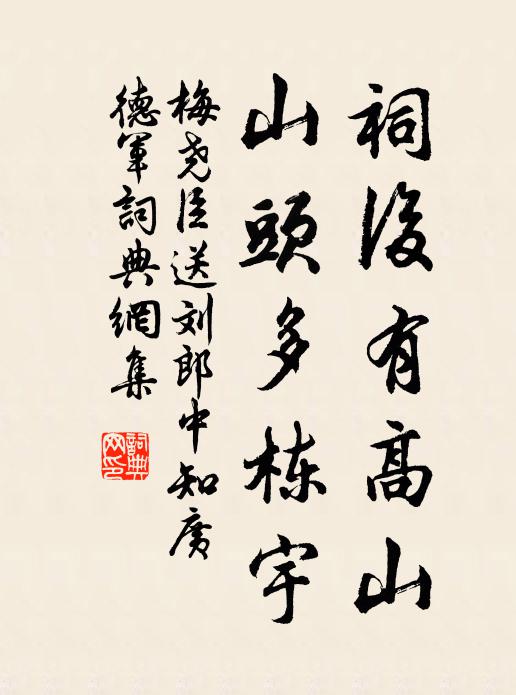 祠後有高山
山頭多栋宇
梅尧臣送刘郎中知廣
德軍詞典網集
詞典
网印